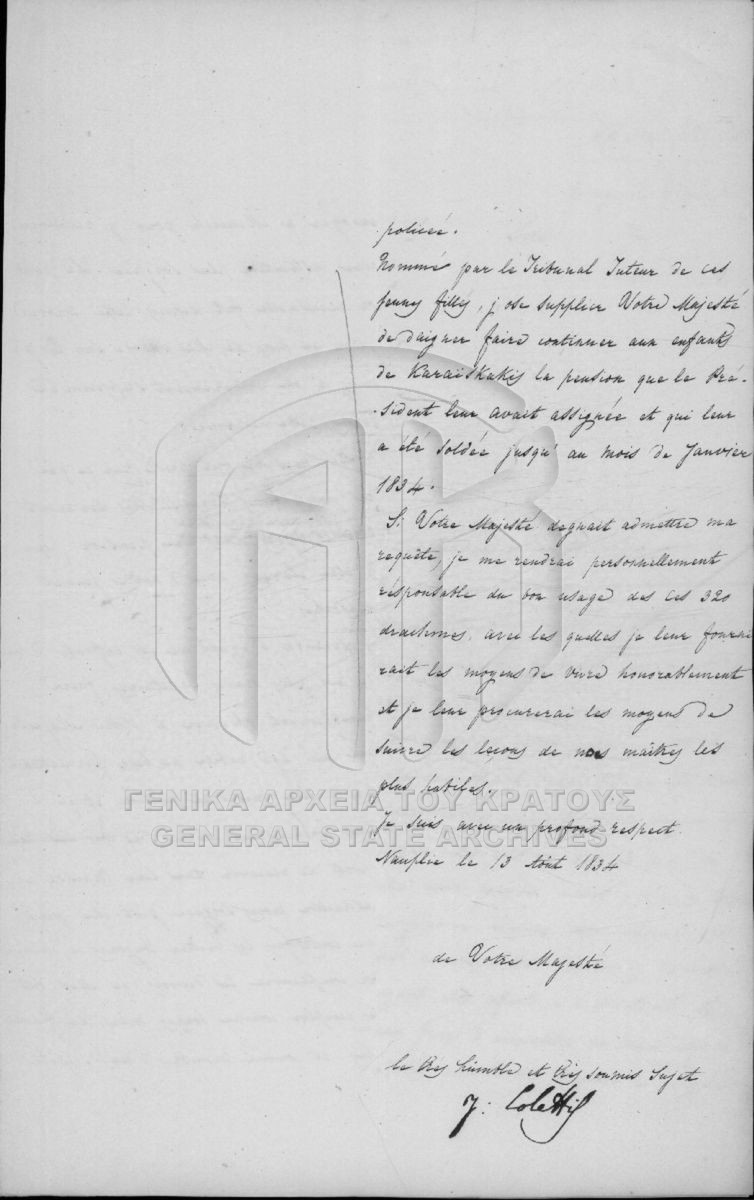 policée.
Nommé par le Tribunal Tuteur de ces
jeunes filles, j ose supplier Votre Majesté
de daigner faire continuer aux enfants
de Karaïskakis la pension que le Pré-
-sident leur avait assignée et qui leur
a été soldée jusqu' au mois de Janvier
1834.
Si Votre Majesté degnait admettre ma
requête, je me rendrai personnellement
résponsable du bon usage des ces 320
drachmes, avec les quelles je leur fourni
rait les moyens de vivre honorablement
et je leur procurerai les moyens de
suivre les leçons de nos maîtres les
plus habiles.
ΓΕΝΙΚΑ ΑΡΧΕΙΑ ΤΟΥ ΚΡΑΤΟΥΣ
Je suis avec un profond respect.
GENERAL STATE ARCHIVES
Nauplie le 13 Août 1834
de Votre Majesté
le très humble et très soumis Sujet
J: Colettis